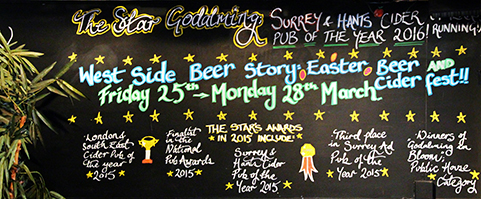 The Star Godalming
SURREY & HANTS CIDER
PUB OF THE YEAR 2016!
RUNNING!
West Side Beer Story: Easter Beer AND
Cider fest!!
Friday 25th → Monday 28th March
London &
South East
Cider Pub of
the year
2015
Finalist
in the
National
Pub Awards
2015
THE STAR'S AWARDS
IN 2015 INCLUDE!
Surrey &
Hants Cider
Pub of the
Year 2015
Third place
in Surrey Ad
Pub of the
Year 2015
Winners of
Godalming in
Bloom,
Public House
Category